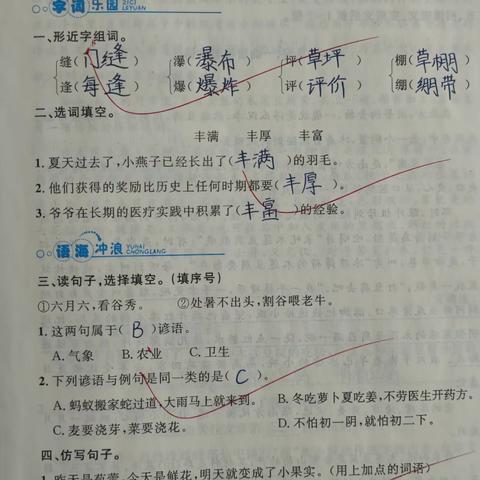 字词乐园 ZICI LEYUAN
一、形近字组词。
缝(门缝) 瀑(瀑布) 坪(草坪) 棚(草棚)
逢(每逢) 爆(爆炸) 评(评价) 绷(绷带)
二、选词填空。
丰满 丰厚 丰富
1. 夏天过去了,小燕子已经长出了(丰满)的羽毛。
2. 他们获得的奖励比历史上任何时期都要(丰厚)。
3. 爷爷在长期的医疗实践中积累了(丰富)的经验。
语海冲浪 YUHAI CHONGLANG
三、读句子,选择填空。(填序号)
①六月六,看谷秀。 ②处暑不出头,割谷喂老牛。
1. 这两句属于(B)谚语。
A. 气象 B. 农业 C. 卫生
2. 下列谚语与例句是同一类的是(C)。
A. 蚂蚁搬家蛇过道,大雨马上就来到。 B. 冬吃萝卜夏吃姜,不劳医生开药方。
C. 麦要浇芽,菜要浇花。 D. 不怕初一阴,就怕初二下。
四、仿写句子。
1. 昨天是苞蕾,今天是鲜花,明天就变成了小果实。(用上加点的词语)